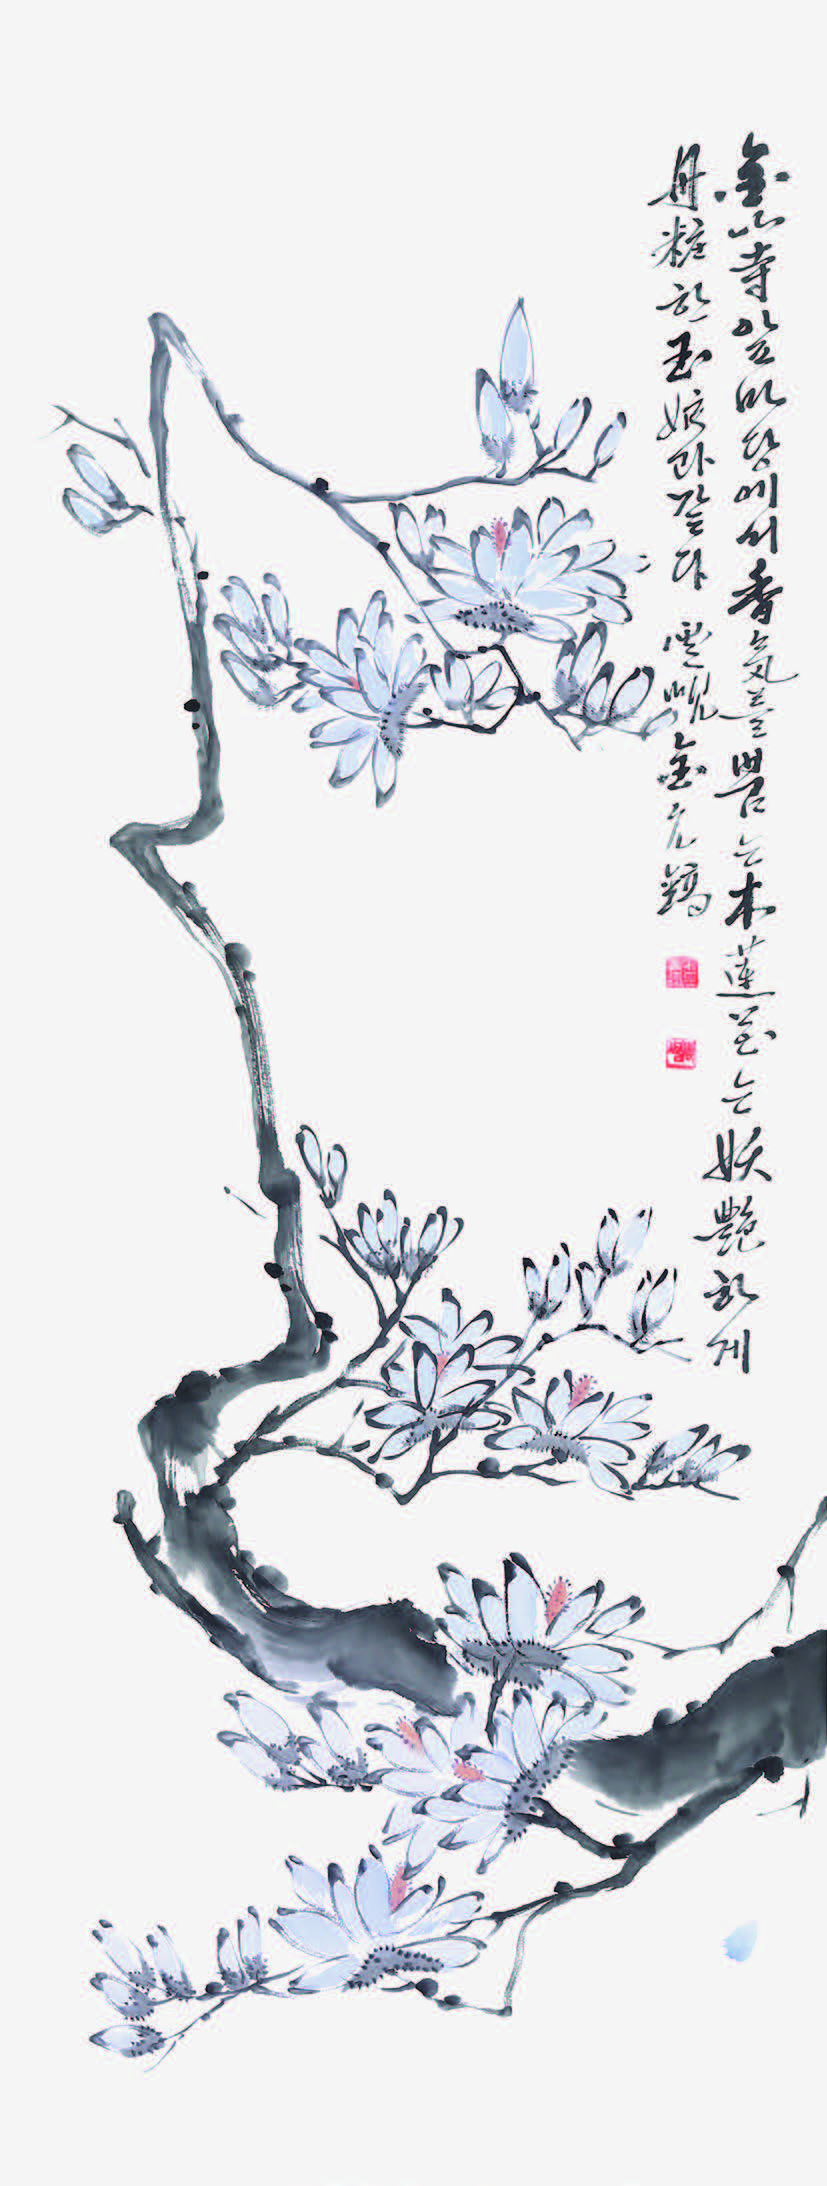 金山寺 앞마당에서 香氣를 뿜는 木蓮꽃은 妖艶하게
丹粧한 玉娘과 같다 雲峴 金元鎬